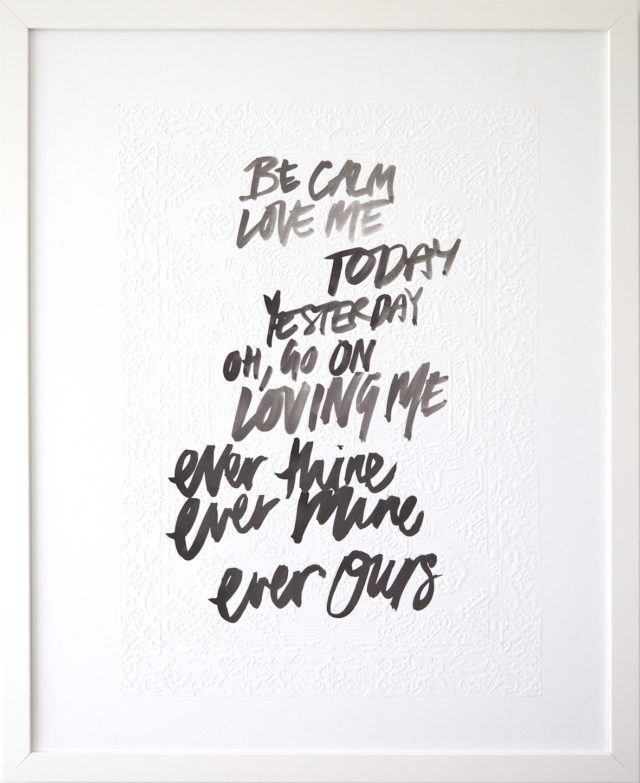 BE CALM
LOVE ME
TODAY
YESTERDAY
OH, GO ON
LOVING ME
ever thine
ever mine
ever ours